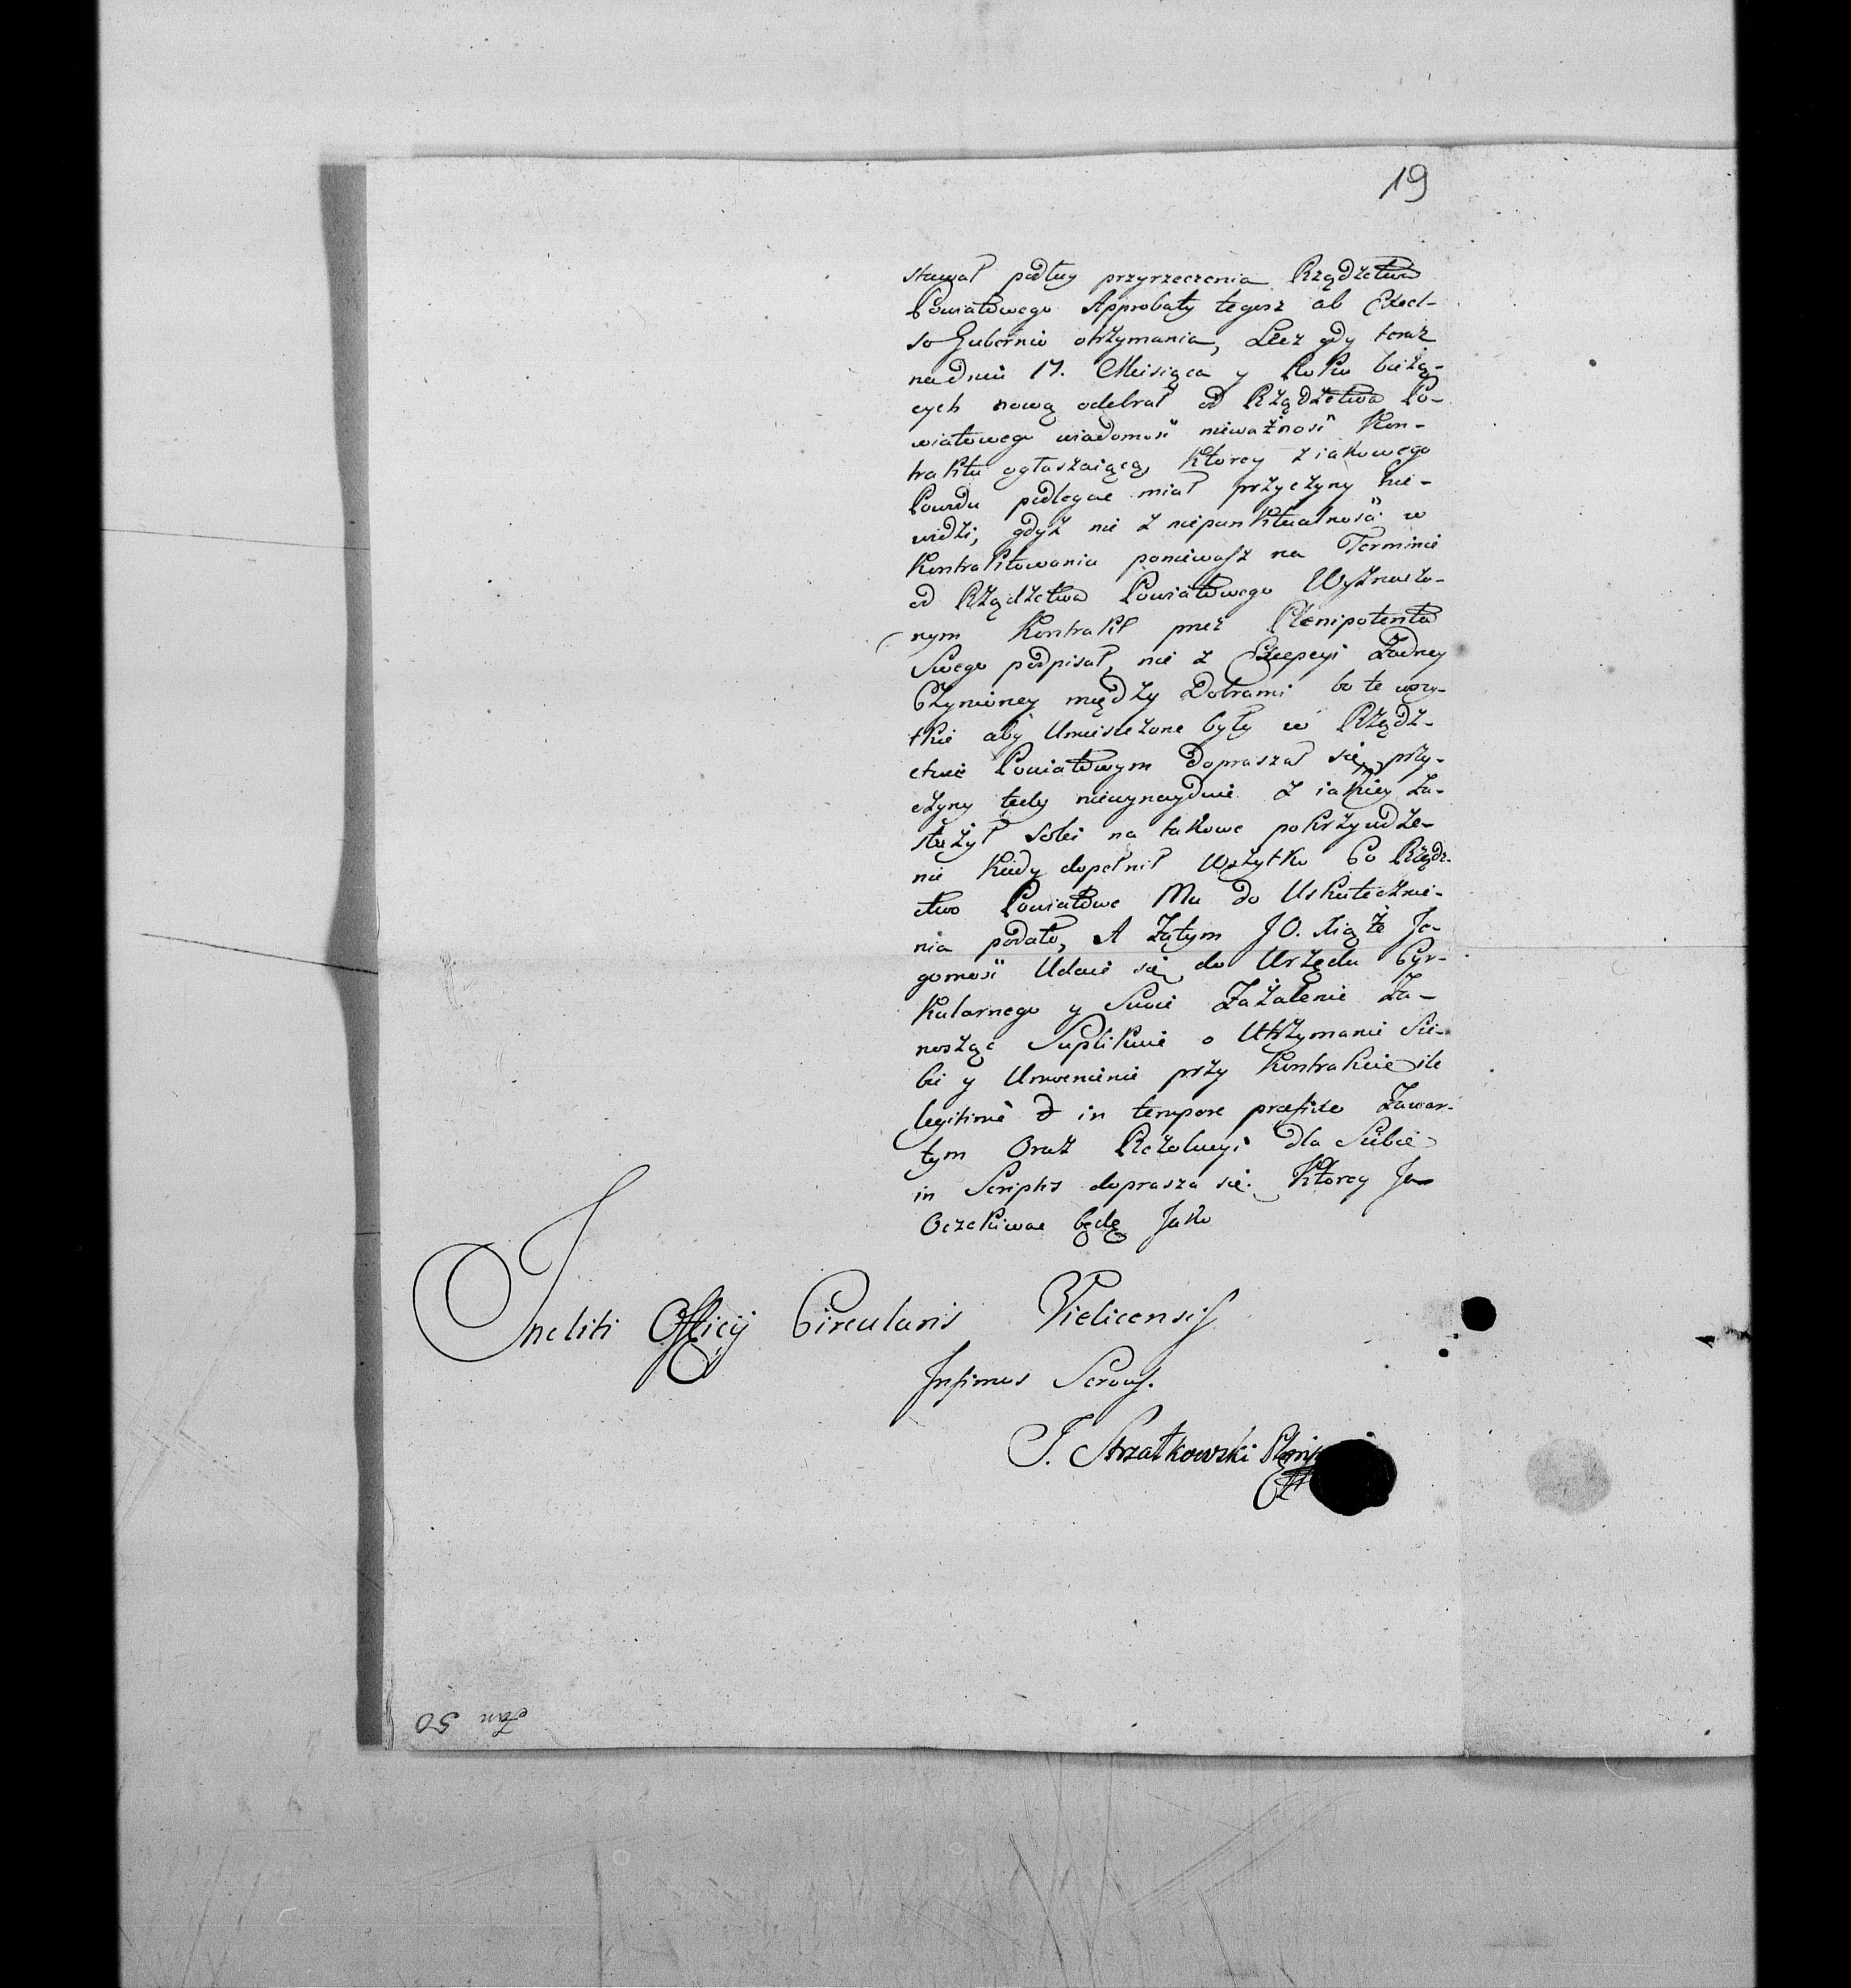 19
stawał podług przyrzeczenia Rządzctwa
Powiatowego Approbaty tegosz ab Excel-
so Gubernio otrzymania, Lecz gdy teraz
na dniu 17. Miesiąca y Roku bieżą-
cych nową odebrał od Rządzctwa Po-
wiatowego wiadomość nieważność Kon-
traktu ogłaszaiącą, Ktorey z iakowego
Powodu podlegać miał przyczyny nie-
widzi, gdyż nie z niepunktualnosci w
Kontraktowania poniewasz na Terminie
od Rządzctwa Powiatowego Wyznaczo-
nym Kontrakt przez Plenipotenta
Swego podpisał, nie z Excepcyi Zadney
Czynioney między Dobrami bo te wszy-
tkie aby Umieszczone były w Rządz-
ctwie Powiatowym Dopraszał się, przy-
czyny tedy niewynayduie z iakiey Za-
służył sobie na takowe pokrzywdze-
nie Kiedy dopełnił Wszytko Co Rządz-
ctwo Powiatowe Mu do Uskutecznie-
nia podało, A Zatym J O. Xiąże Je-
gomość Udaie się do Urzędu Cyr-
kularnego y Swoie Zażalenie Za-
nosząc Suplikuie o Utrzymanie Sie-
bie y Umocnienie przy Kontrakcie ile
legitimè & in tempore præfixo Zawar-
tym Oraz Rezolucyi dla Siebie
in Scriptis doprasza się. Ktorey Ja
Oczekiwać będę Jako
Incliti Officij Circularis Vielicensis
Infimus Servus.
J. Strzałkowski
Jan 50